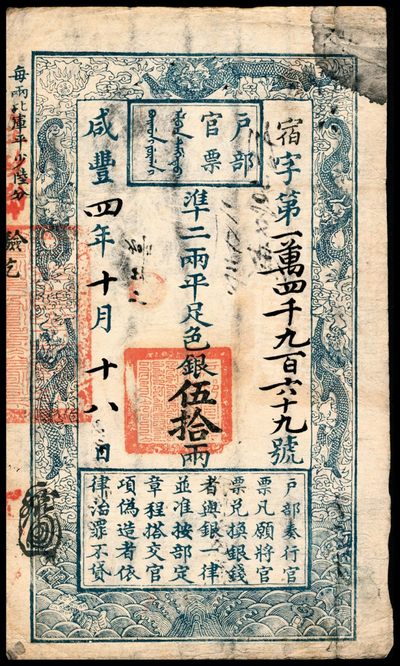 戶部
官票
宿字第一萬四千九百六十九號
準二兩平足色銀伍拾兩
咸豐四年十月十八日
每兩比庫平少陸分
驗訖
戶部奏行官
票凡願將官
票兌換銀錢
者與銀一律
並准按部定
章程搭交官
項偽造者依
律治罪不貸